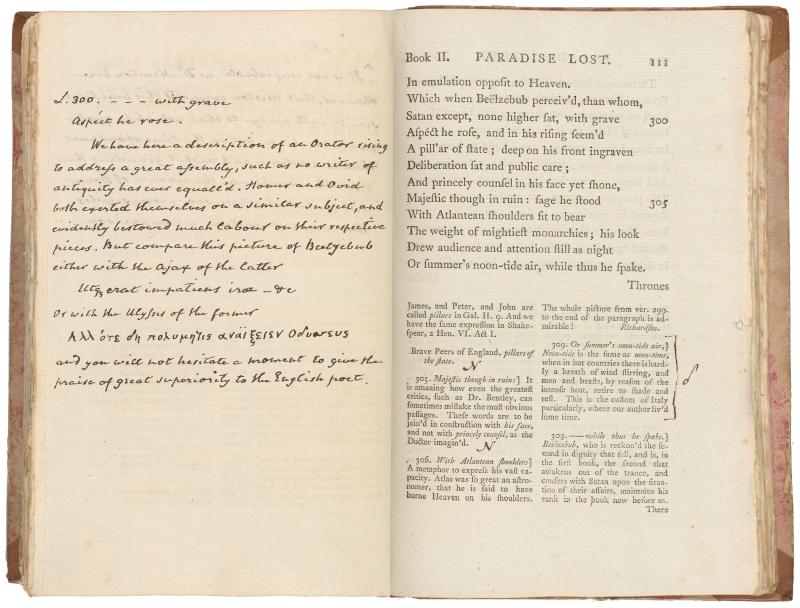 L. 300. - - - with grave
Aspect he rose.
We have here a description of an Orator rising
to address a great assembly, such as no writer of
antiquity has ever equall'd. Homer and Ovid
both exerted themselves on a similar subject, and
evidently bestowed much labour on their respective
pieces. But compare this picture of Beelzebub
either with the Ajax of the latter
Utq erat impatiens iræ - &c
Or with the Ulysses of the former
Αλλ ότε δη πολυμητις αναΐξειεν Οδυσσευς
and you will not hesitate a moment to give the
praise of great superiority to the English poet.
Book II. PARADISE LOST. 111
In emulation opposit to Heaven.
Which when Beëlzebub perceiv'd, than whom,
Satan except, none higher ſat, with grave 300
Aſpéct he roſe, and in his riſing ſeem'd
A pill'ar of ſtate; deep on his front ingraven
Deliberation ſat and public care;
And princely counſel in his face yet ſhone,
Majeſtic though in ruin: ſage he ſtood 305
With Atlantean ſhoulders fit to bear
The weight of mightieſt monarchies; his look
Drew audience and attention ſtill as night
Or ſummer's noon-tide air, while thus he ſpake.
Thrones
James, and Peter, and John are
called pillars in Gal. II. 9. And we
have the ſame expreſſion in Shake-
ſpear, 2 Hen. VI. Act I.
Brave Peers of England, pillars of
the ſtate.
N
305. Majeſtic though in ruin:] It
is amazing how even the greateſt
critics, ſuch as Dr. Bentley, can
ſometimes miſtake the moſt obvious
paſſages. Theſe words are to be
join'd in conſtruction with his face,
and not with princely counſel, as the
Doctor imagin'd.
N
306. With Atlantean ſhoulders]
A metaphor to expreſs his vaſt ca-
pacity. Atlas was ſo great an aſtro-
nomer, that he is ſaid to have
borne Heaven on his ſhoulders.
The whole picture from ver. 299.
to the end of the paragraph is ad-
mirable! Richardſon.
309. Or ſummer's noon-tide air,]
Noon-tide is the ſame as noon-time,
when in hot countries there is hard-
ly a breath of wind ſtirring, and
men and beaſts, by reaſon of the
intenſe heat, retire to ſhade and
reſt. This is the cuſtom of Italy
particularly, where our author liv'd
ſome time.
309.—while thus he ſpake.]
Beëlzebub, who is reckon'd the ſe-
cond in dignity that fell, and is, in
the firſt book, the ſecond that
awakens out of the trance, and
confers with Satan upon the ſitua-
tion of their affairs, maintains his
rank in the book now before us.
There